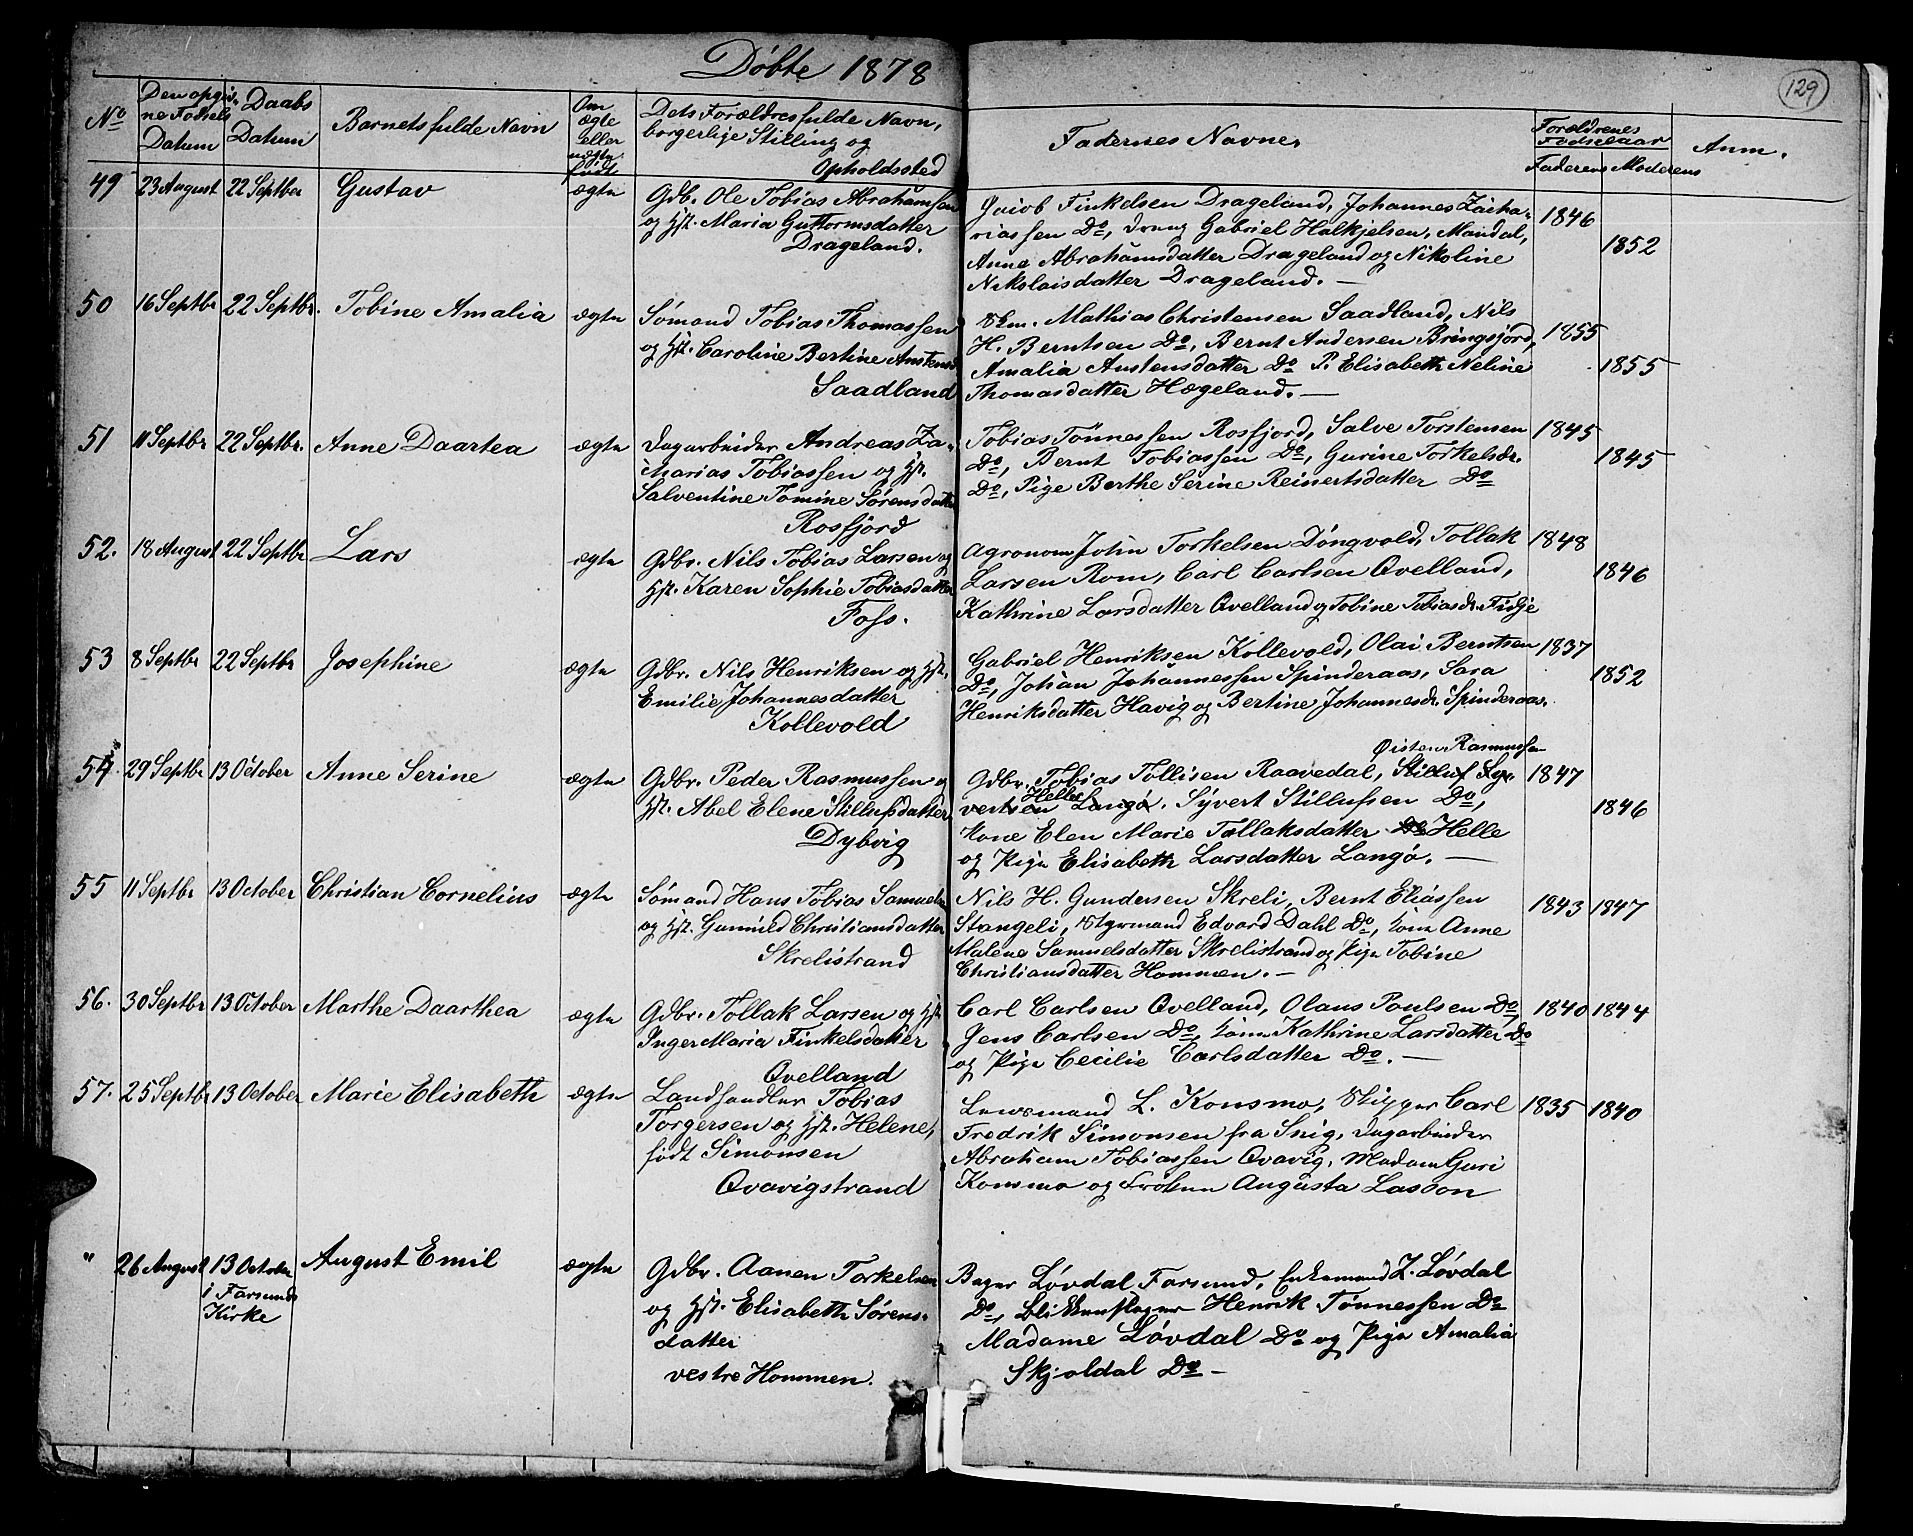 Döbte 1878
129
No
Den opgiv-
ne Fødsels
Datum
Daabs
Datum
Barnets fulde Navn
Om
ægte
eller
uægte
født
Dets Forældres fulde Navn,
borgerlige Stilling og
Opholdssted
Fadernes Navne,
Forældrenes
Fødselaar
Faderens Moderens
Anm.
49 23 August 22 Septber Gustav ægte
Gdb. Ole Tobias Abrahamsen
og Hst. Maria Guttormsdatter
Drageland.
Jacob Finkelsen Drageland, Johannes Zacha-
riassen Do, Dreng Gabriel Halkjelsen, Mandal,
Anne Abrahamsdatter Drageland og Nikoline
Nikolaisdatter Drageland. —
1846
1852
50 16 Septbr 22 Septbr. Tobine Amalia ægte
Sömand Tobias Thomassen
og Hst. Caroline Bertine Anstensd
Saadland
Skm. Mathias Christensen Saadland, Nils
H. Berntsen Do, Bernt Andersen Bringsjord,
Amalia Austensdatter Do P. Elisabeth Neline
Thomasdatter Hægeland. —
1855
1855
51 11 Septbr 22 Septbr. Anne Daartea ægte
Dagarbeider Andreas Za-
Marias Tobiassen og Hst.
Salventine Tomine Sörensdatter
Rosfjord
Tobias Tönnessen Rosfjord, Salve Torstensen
Do, Bernt Tobiassen Do, Gurine Torkelsdr.
Do, Pige Berthe Serine Reinertsdatter Do
1845
1845
52. 18 August 22 Septbr Lars ægte
Gdbr. Nils Tobias Larsen og
Hst. Karen Sophie Tobiasdatter
Foss.
Agronom John Torkelsen Döngvold, Tollak
Larsen Rom, Carl Carlsen Qvelland,
Kathrine Larsdatter Qvelland og Tobine Tobiasdr. Fidje
1848
1846
53 8 Septbr 22 Septbr Josephine ægte
Gdbr. Nils Henriksen og Hst.
Emilie Johannesdatter
Kollevold
Gabriel Henriksen Kollevold, Olai Berntsen
Do, Johan Johannessen Spinderaas, Sara
Henriksdatter Havig og Bertine Johannesdr. Spinderaas.
1837
1852
54. 29 Septbr 13 October Anne Serine ægte
Gdbr. Peder Rasmussen og
Hst. Abel Elene Stillufsdatter
Dybvig
Östen Rasmussen
Gdbr. Tobias Tollisen Raavedal, Stilluf Sy-
Helle
vertsen Langö. Syvert Stillufsen Do,
Kone Elen Marie Tollaksdatter Do Helle
og Pige Elisabeth Larsdatter Langö. —
1847
1846
55 11 Septbr 13 October Christian Cornelius ægte
Sömand Hans Tobias Samuelsen
og Hst. Gunnild Christiansdatter
Skrelistrand
Nils H. Gundersen Skreli, Bernt Eliassen
Stangeli, Styrmand Edvard Dahl Do, Kone Anne
Malene Samuelsdatter Skrelistrand og Pige Tobine
Christiansdatter Hommen. —
1843 1847
56. 30 Septbr 13 October Marthe Daarthea ægte
Gdbr. Tollak Larsen og Hst
Inger Maria Finkelsdatter
Qvelland
Carl Carlsen Qvelland, Olaus Poulsen Do,
Jens Carlsen Do, Kone Kathrine Larsdatter Do
og Pige Cecilie Carlsdatter Do. —
1840 1844
57. 25 Septbr 13 October Marie Elisabeth ægte
Landhandler Tobias
Torgersen og Hst. Helene,
född Simonsen
Qvavigstrand
Lensmand L. Konsmo, Skipper Carl
Fredrik Simonsen fra Snig, Dagarbeider
Abraham Tobiassen Qvavig, Madam Guri
Konsmo og Fröken Augusta Lasson
1835 1840
" 26 August 13 October
i Farsunds
Kirke
August Emil ægte
Gdbr. Aanen Torkelsen
og Hst. Elisabeth Sörens-
datter
vestre Hommen.
Bager Lövdal Farsund, Enkemand Z. Lövdal
Do, Blikkenslager Henrik Tönnessen Do
Madame Lövdal Do og Pige Amalia
Skjoldal Do —